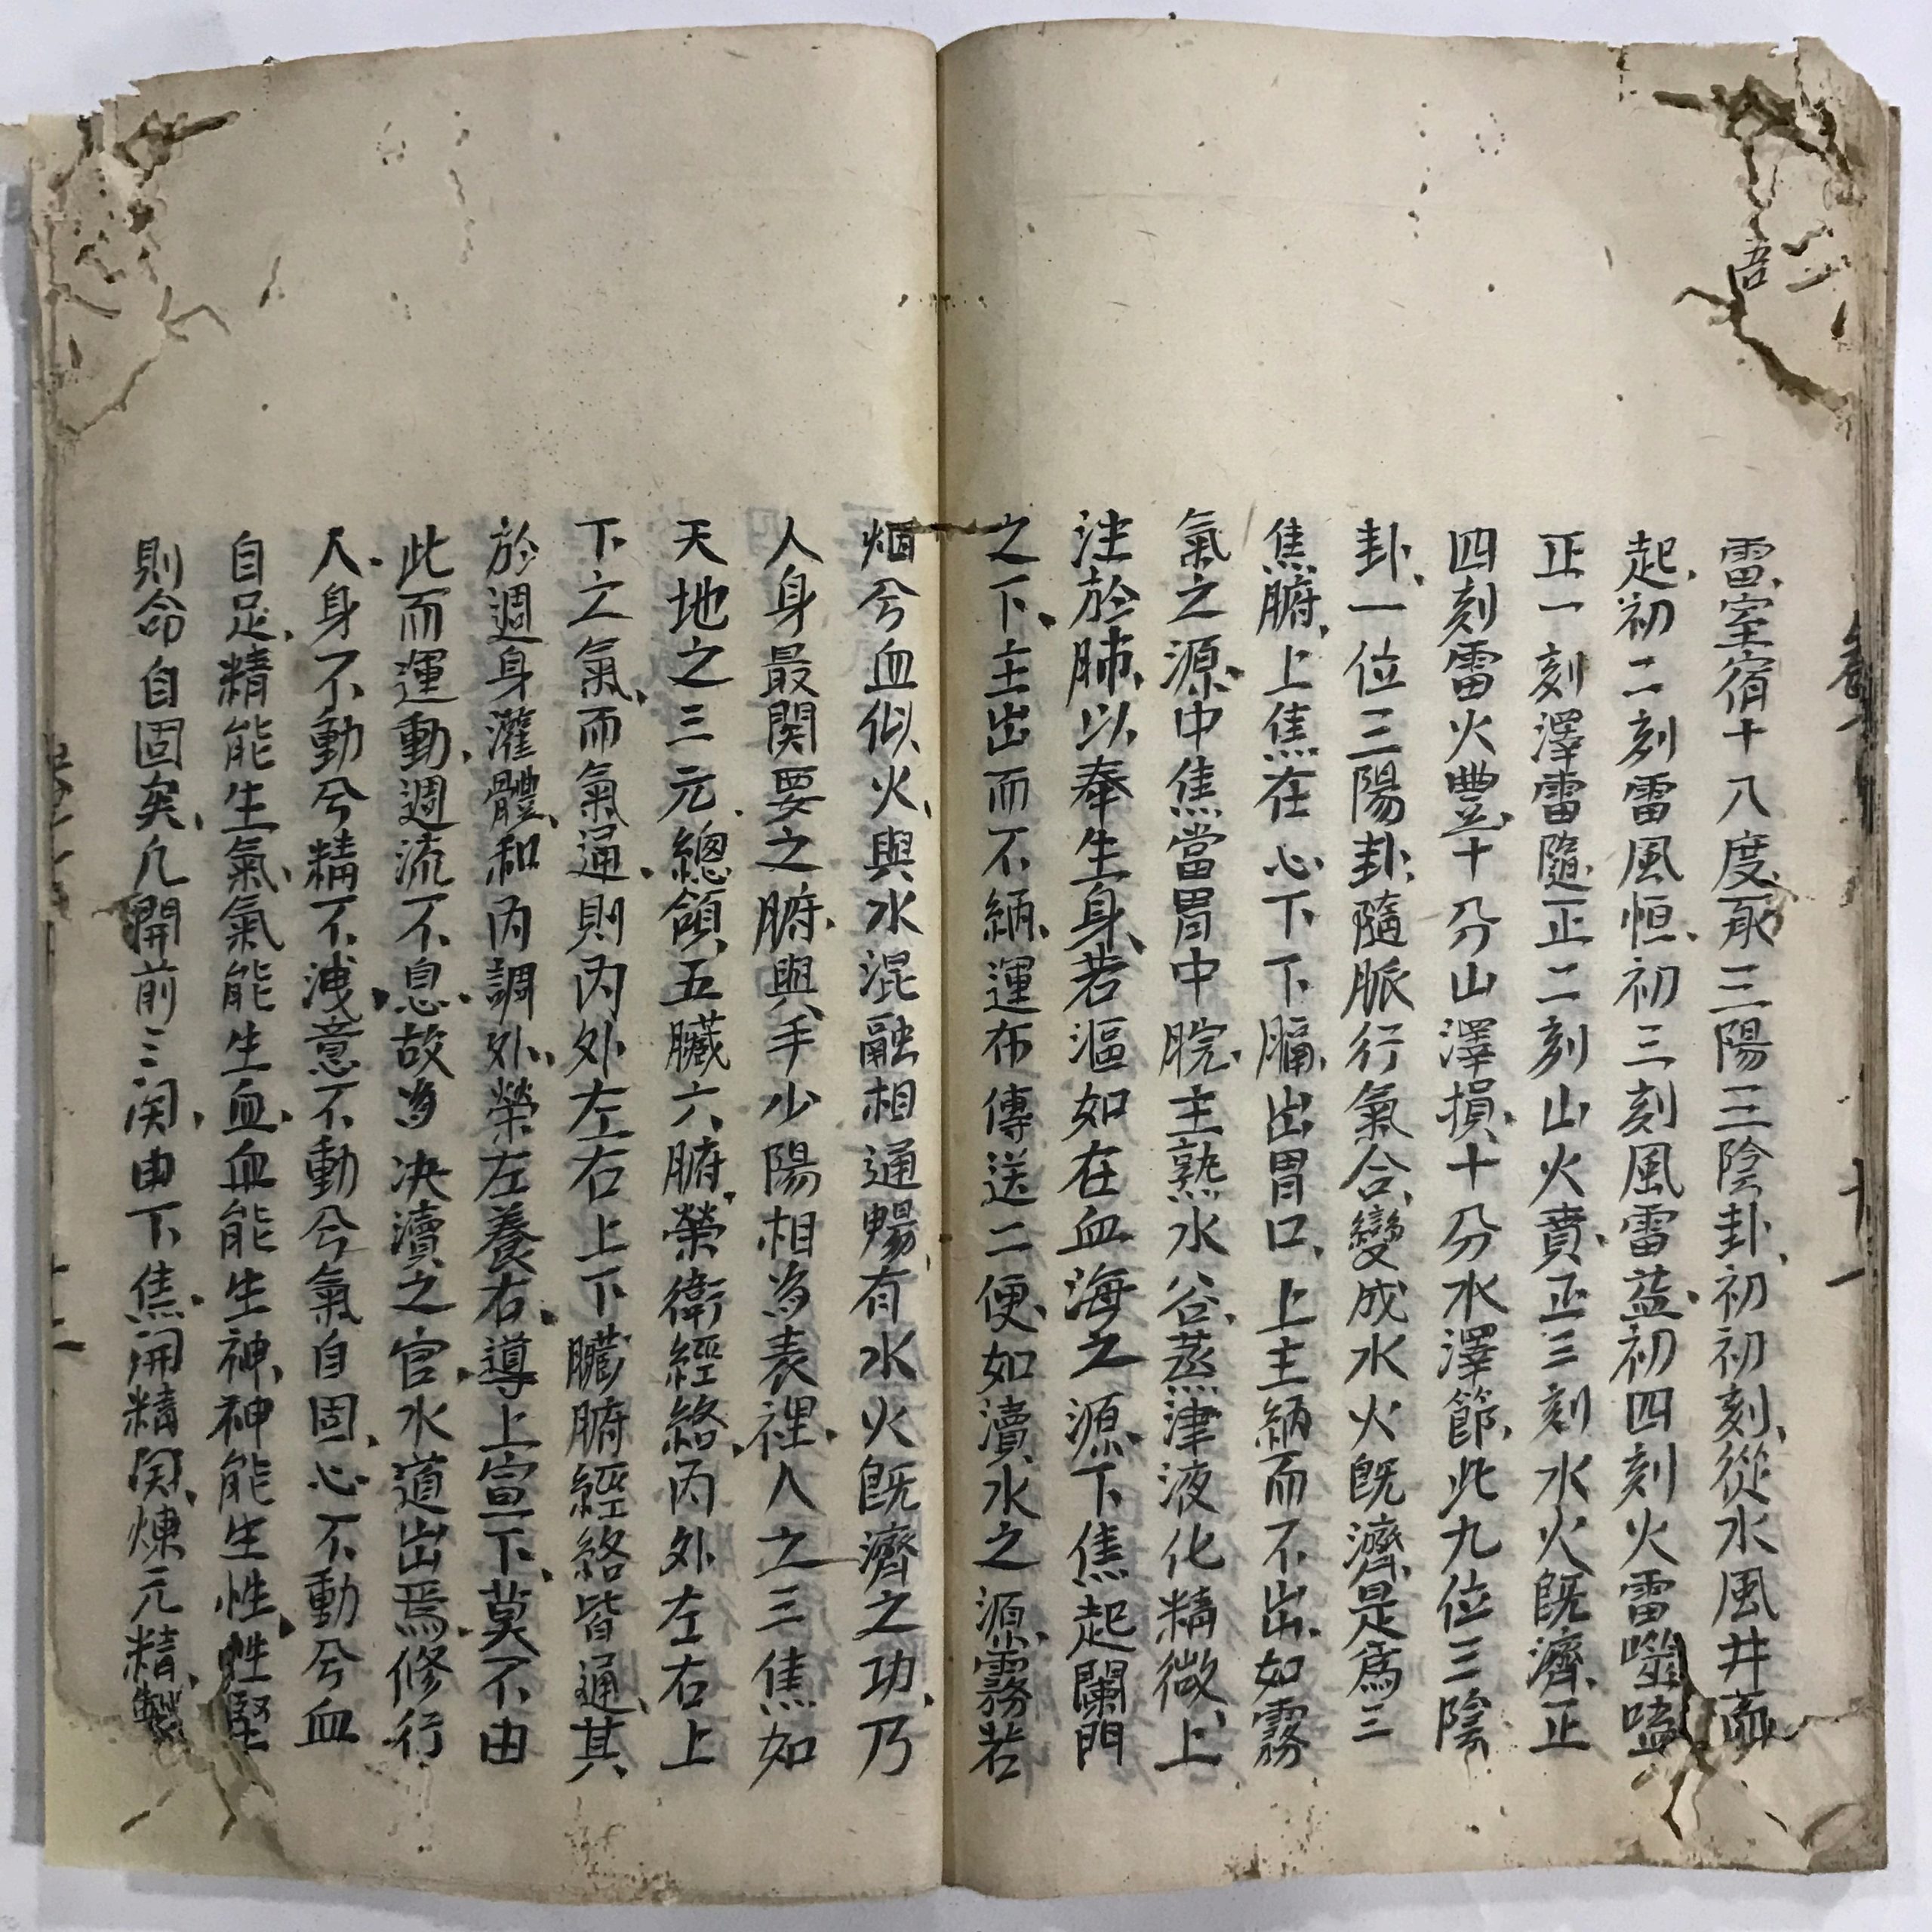 雷室宿十八度取三陽三陰卦初初刻從水風井而
起初二刻雷風恒初三刻風雷益初四刻火雷噬嗑
正一刻澤雷隨正二刻山火賁正三刻水火既濟正
四刻雷火豐十分山澤損十分水澤節此九位三陰
卦一位三陽卦隨脈行氣合變成水火既濟是爲三
焦腑上焦在心下下膈出胃口上主納而不出如霧
氣之源中焦當胃中脘主熟水谷蒸津液化精微上
注於肺以奉生身若漚如在血海之源下焦起闌門
之下主出而不納運布傳送二便如瀆水之源霧若
烟兮血似火與水混融相通暢有水火既濟之功乃
人身最関要之腑與手少陽相為表裡人之三焦如
天地之三元總領五臟六腑榮衛經絡內外左右上
下之氣而氣通則內外左右上下臟腑經絡皆通其
於週身灌體和內調外榮左養右導上宣下莫不由
此而運動週流不息故為决瀆之官水道出焉修行
人身不動兮精不洩意不動兮氣自固心不動兮血
自足精能生氣氣能生血血能生神神能生性性堅
則命自固矣凡開前三関由下焦開精関煉元精
吾